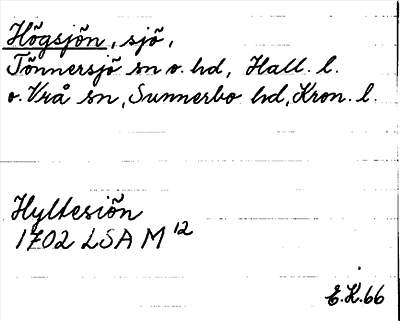 Högsjön, sjö,
Tönnersjö sn o. hd, Hall. l.
o. Vrå sn, Sunnerbo hd, Kron. l.
Hyltesiön
1702 LSA M 12
E.K.66